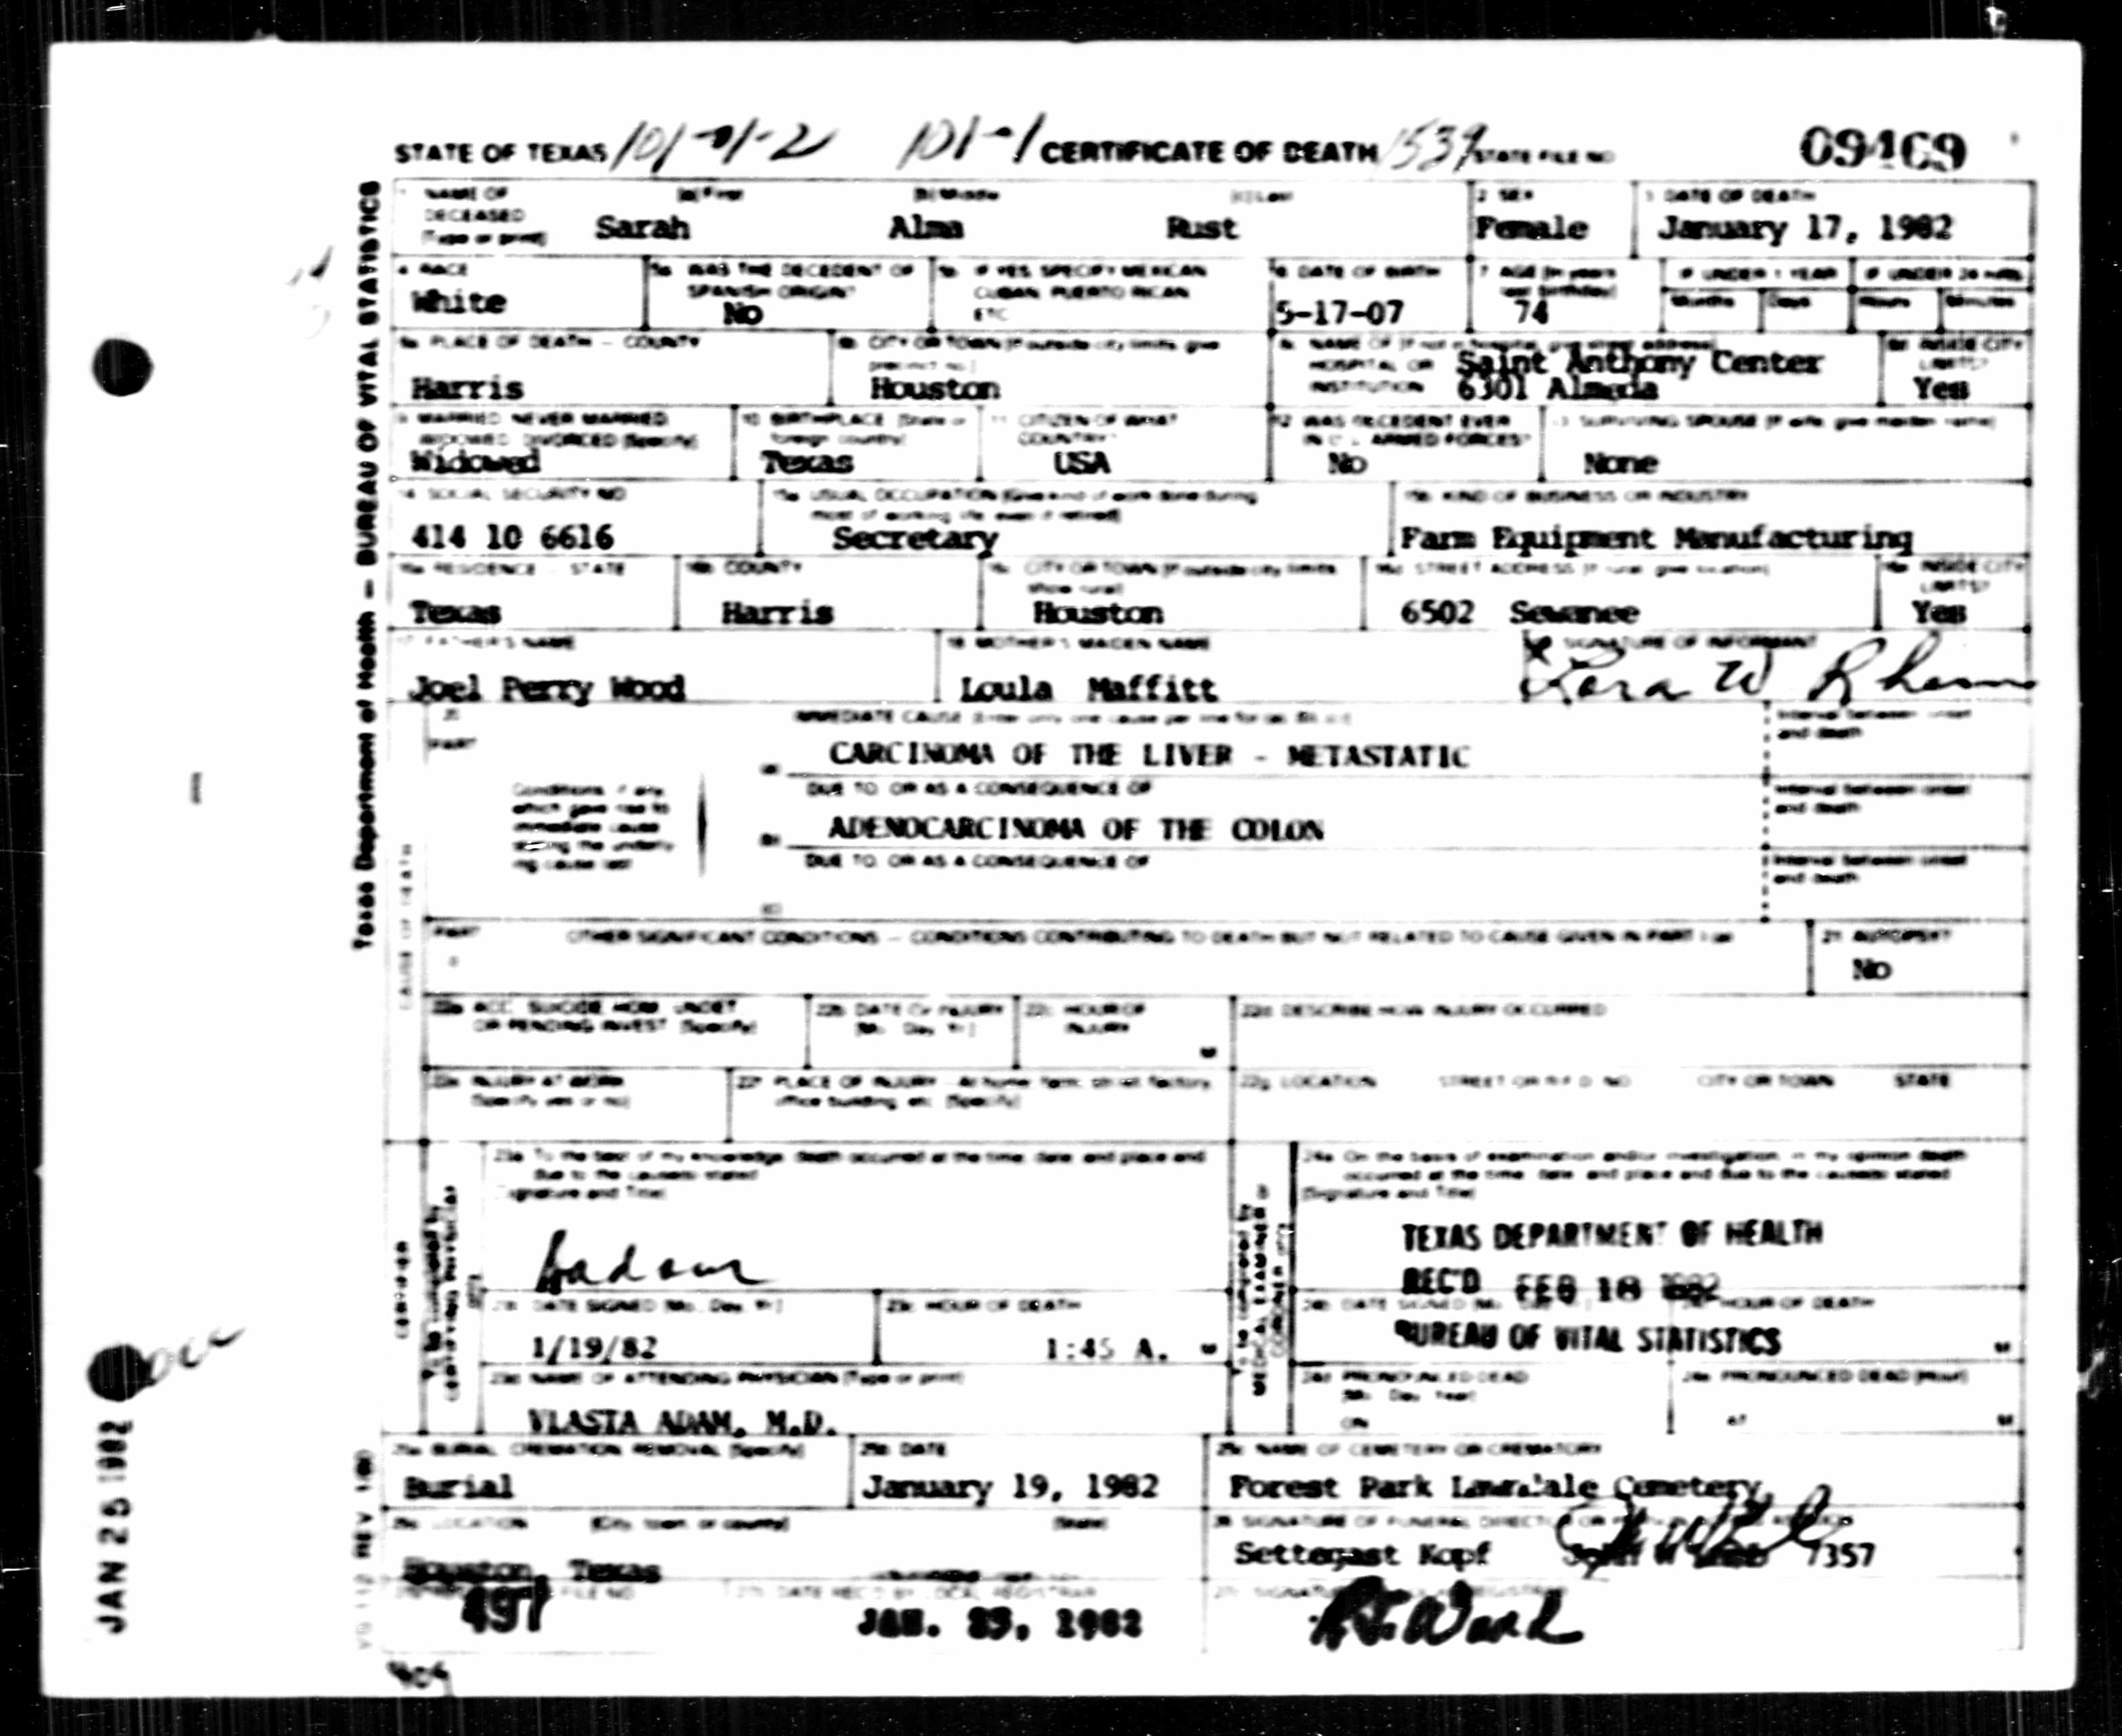 STATE OF TEXAS 101-01-2 101-1 CERTIFICATE OF DEATH 1539 STATE FILE NO 09469
Texas Department of Health — BUREAU OF VITAL STATISTICS
1 NAME OF DECEASED (Type or print) (a) First (b) Middle (c) Last 2 SEX 3 DATE OF DEATH
Sarah Alma Rust Female January 17, 1982
4 RACE 5a WAS THE DECEDENT OF SPANISH ORIGIN? 5b IF YES, SPECIFY MEXICAN CUBAN PUERTO RICAN ETC 6 DATE OF BIRTH 7 AGE (In years last birthday) IF UNDER 1 YEAR IF UNDER 24 HRS
Months Days Hours Minutes
White No 5-17-07 74
8a PLACE OF DEATH — COUNTY 8b CITY OR TOWN (If outside city limits give precinct no.) 8c NAME OF (If not in hospital, give street address) HOSPITAL OR INSTITUTION 8d INSIDE CITY LIMITS?
Saint Anthony Center
Harris Houston 6301 Almeda Yes
9 MARRIED NEVER MARRIED WIDOWED DIVORCED (Specify) 10 BIRTHPLACE (State or foreign country) 11 CITIZEN OF WHAT COUNTRY? 12 WAS DECEDENT EVER IN U.S. ARMED FORCES? 13 SURVIVING SPOUSE (If wife, give maiden name)
Widowed Texas USA No None
14 SOCIAL SECURITY NO 15a USUAL OCCUPATION (Give kind of work done during most of working life even if retired) 15b KIND OF BUSINESS OR INDUSTRY
414 10 6616 Secretary Farm Equipment Manufacturing
16a RESIDENCE - STATE 16b COUNTY 16c CITY OR TOWN (If outside city limits show rural) 16d STREET ADDRESS (If rural give location) 16e INSIDE CITY LIMITS?
Texas Harris Houston 6502 Sewanee Yes
17 FATHER'S NAME 18 MOTHER'S MAIDEN NAME 19 SIGNATURE OF INFORMANT
Joel Perry Wood Loula Maffitt Lora W
CAUSE OF DEATH
PART IMMEDIATE CAUSE (Enter only one cause per line for (a), (b), (c)) Interval between onset and death
(a) CARCINOMA OF THE LIVER - METASTATIC
Conditions if any which gave rise to immediate cause stating the underlying cause last
DUE TO, OR AS A CONSEQUENCE OF Interval between onset and death
(b) ADENOCARCINOMA OF THE COLON
DUE TO, OR AS A CONSEQUENCE OF Interval between onset and death
(c)
PART OTHER SIGNIFICANT CONDITIONS — CONDITIONS CONTRIBUTING TO DEATH BUT NOT RELATED TO CAUSE GIVEN IN PART I (a) 21 AUTOPSY?
No
22a ACC. SUICIDE HOM. UNDET OR PENDING INVEST (Specify) 22b DATE OF INJURY (Mo. Day, Yr.) 22c HOUR OF INJURY M 22d DESCRIBE HOW INJURY OCCURRED
22e INJURY AT WORK (Specify yes or no) 22f PLACE OF INJURY - At home farm street factory office building etc (Specify) 22g LOCATION STREET OR R F D NO CITY OR TOWN STATE
CERTIFIER
23a To the best of my knowledge, death occurred at the time, date and place and due to the cause(s) stated
(Signature and Title)
24a On the basis of examination and/or investigation, in my opinion death occurred at the time, date and place and due to the cause(s) stated
(Signature and Title)
TEXAS DEPARTMENT OF HEALTH
REC'D FEB 18 1982
BUREAU OF VITAL STATISTICS
23b DATE SIGNED (Mo., Day, Yr.) 23c HOUR OF DEATH 24b DATE SIGNED HOUR OF DEATH
1/19/82 1:45 A. M M
23d NAME OF ATTENDING PHYSICIAN (Type or print) 24d PRONOUNCED DEAD (Mo. Day, Year) 24e PRONOUNCED DEAD (Hour)
ON AT M
VLASTA ADAM, M.D.
25a BURIAL CREMATION REMOVAL (Specify) 25b DATE 25c NAME OF CEMETERY OR CREMATORY
Burial January 19, 1982 Forest Park Lawndale Cemetery
25d LOCATION (City, town, or county) (State) 26 SIGNATURE OF FUNERAL DIRECTOR
Houston, Texas Settegast Kopf 7357
FILE NO 27b DATE REC'D BY LOCAL REGISTRAR 27c SIGNATURE
497 JAN. 25, 1982
JAN 25 1982
VS 112 REV 1/80